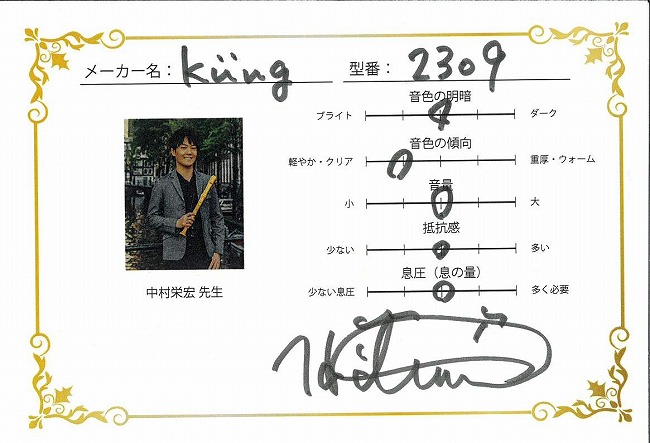 メーカー名： Küng 型番： 2309
音色の明暗
ブライト ダーク
音色の傾向
軽やか・クリア 重厚・ウォーム
音量
小 大
抵抗感
少ない 多い
息圧（息の量）
少ない息圧 多く必要
中村栄宏 先生